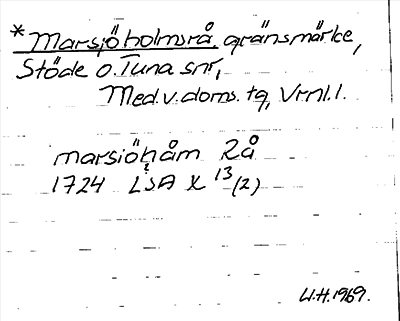 *Marsjöholmsrå, gränsmärke,
Stöde o. Tuna snr,
Med.v.doms. tg, Vrnl.l.
marsiöhåm Rå
1724 LSA X 13/(2)
U.H. 1969.